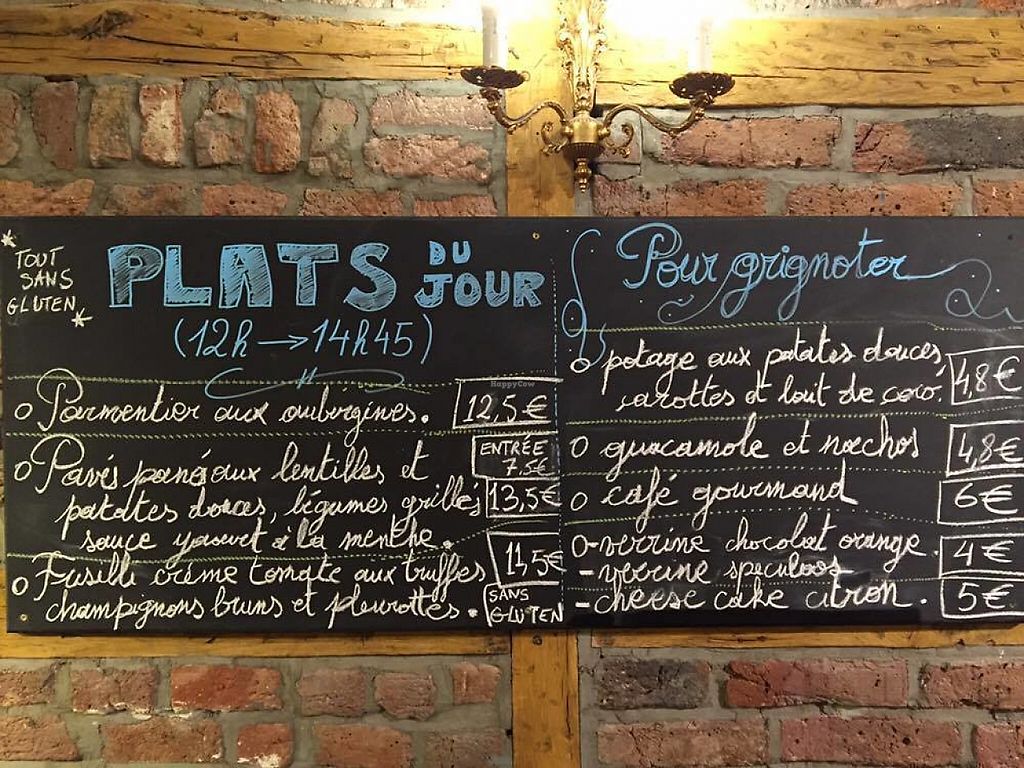 TOUT
SANS
GLUTEN
PLATS DU
JOUR
(12h → 14h45)
o Parmentier aux aubergines. 12,5€
o Pavés panés aux lentilles et ENTRÉE 7,5€
patates douces, légumes grillés 13,5€
sauce yaourt à la menthe.
o Fusilli crème tomate aux truffes 11,5€
champignons bruns et pleurottes. SANS GLUTEN
Pour grignoter
o potage aux patates douces,
carottes et lait de coco. 4,8€
o guacamole et nachos 4,8€
o café gourmand 6€
o - verrine chocolat orange. 4€
- verrine speculoos
- cheese cake citron. 5€
HappyCow